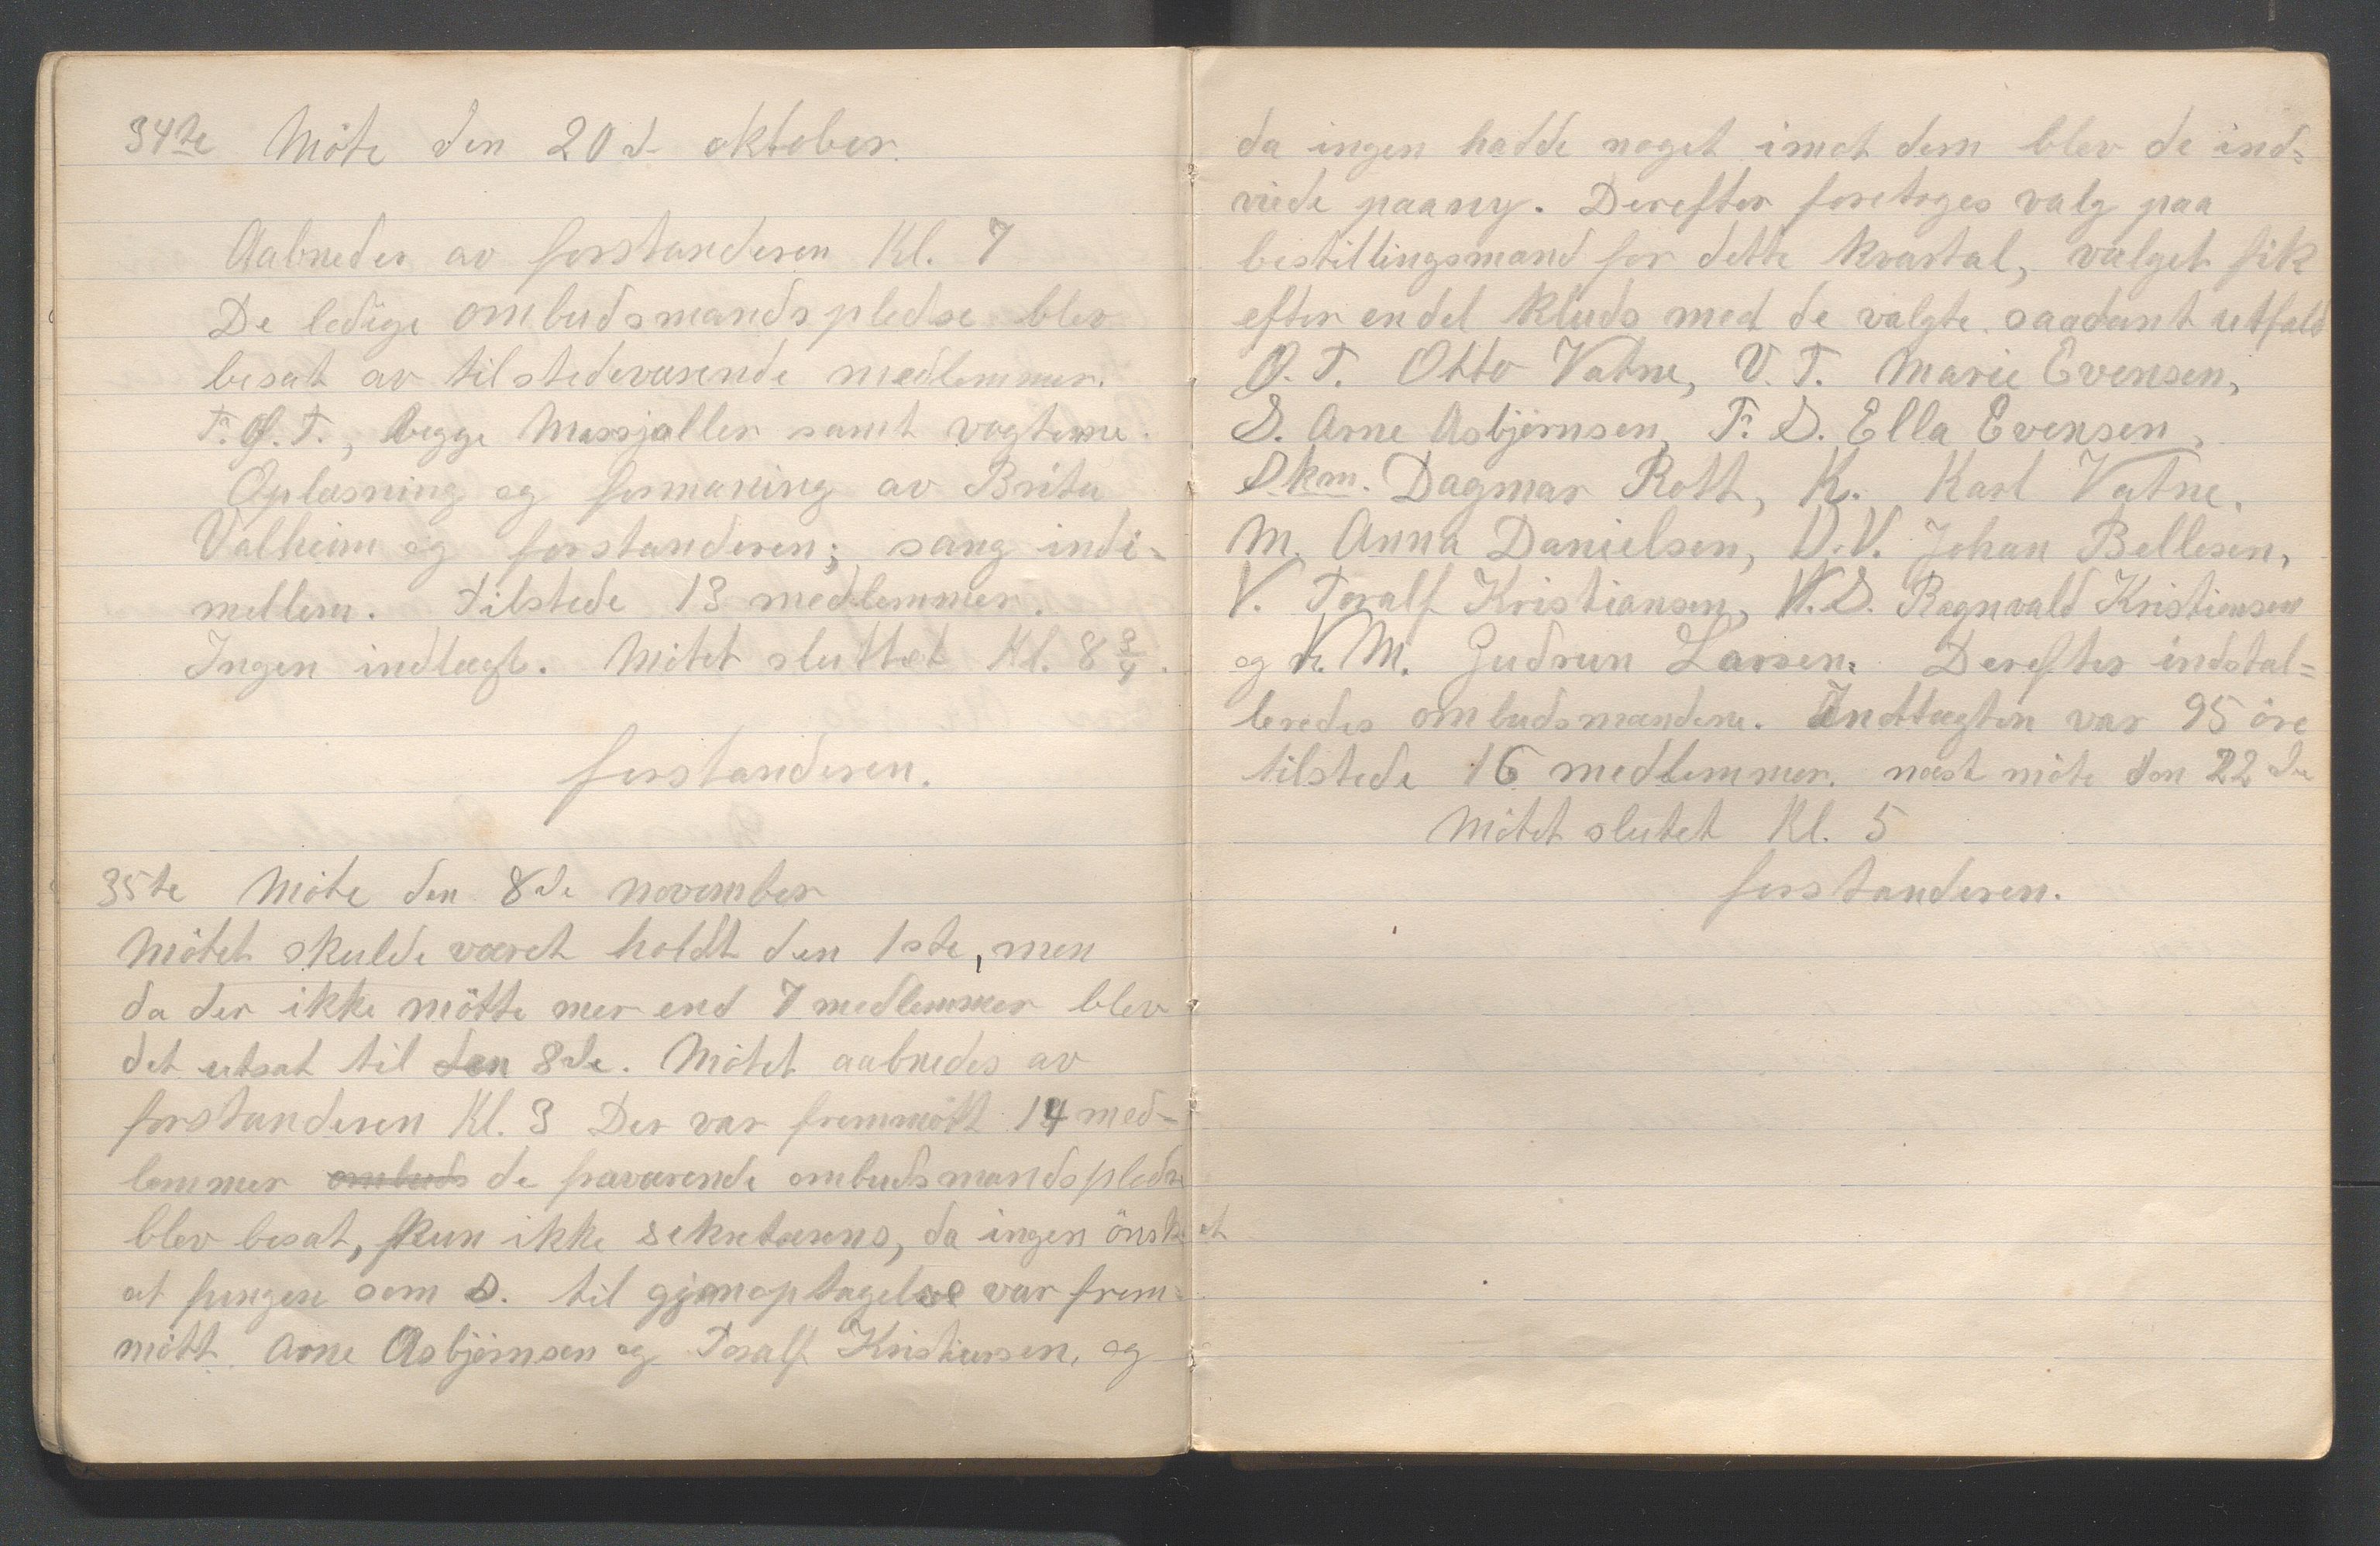 34te Möte den 20d oktober.
Aabnedes av forstanderen Kl. 7
De ledige ombudsmandspledse blev
besat av tilstedeværende medlemmer.
F. O. T., begge Massjaller samt vagterne.
Oplæsning og formaning av Brita
Valheim og forstanderen; sang indi-
mellem. Tilstede 13 medlemmer.
Ingen indtægt. Mötet sluttet Kl. 8 3/4.
forstanderen.
35te Möte den 8de november
Mötet skulde været holdt den 1ste, men
da der ikke mötte mer end 7 medlemmer blev
det utsat til den 8de. Mötet aabnedes av
forstanderen Kl. 3 Der var fremmött 14 med-
lemmer ombuds de faværende ombudsmandspledse
blev besat, kun ikke sekretærens, da ingen önsket
at fungere som S. til gjenoptagelse var frem-
mött Arne Asbjörnsen og Toralf Kristiansen, og
da ingen hadde noget imot dem blev de ind-
viede paany. Derefter foretoges valg paa
bestillingsmænd for dette kvartal, valget fik
efter endel kluds med de valgte saadant utfald
O. T. Otto Vatne, V. T. Marie Evensen,
S. Arne Asbjörnsen, F. S. Ella Evensen,
Skm. Dagmar Rott, K. Karl Vatne.
M. Anna Danielsen, D.V. Johan Bellesen,
V. Toralf Kristiansen, V.S. Ragnvald Kristiansen
og V. M. Gudrun Larsen. Derefter indstal-
leredes ombudsmændene. Indtægten var 95 öre
tilstede 16 medlemmer. næst möte den 22de
Mötet slutet Kl. 5
forstanderen.